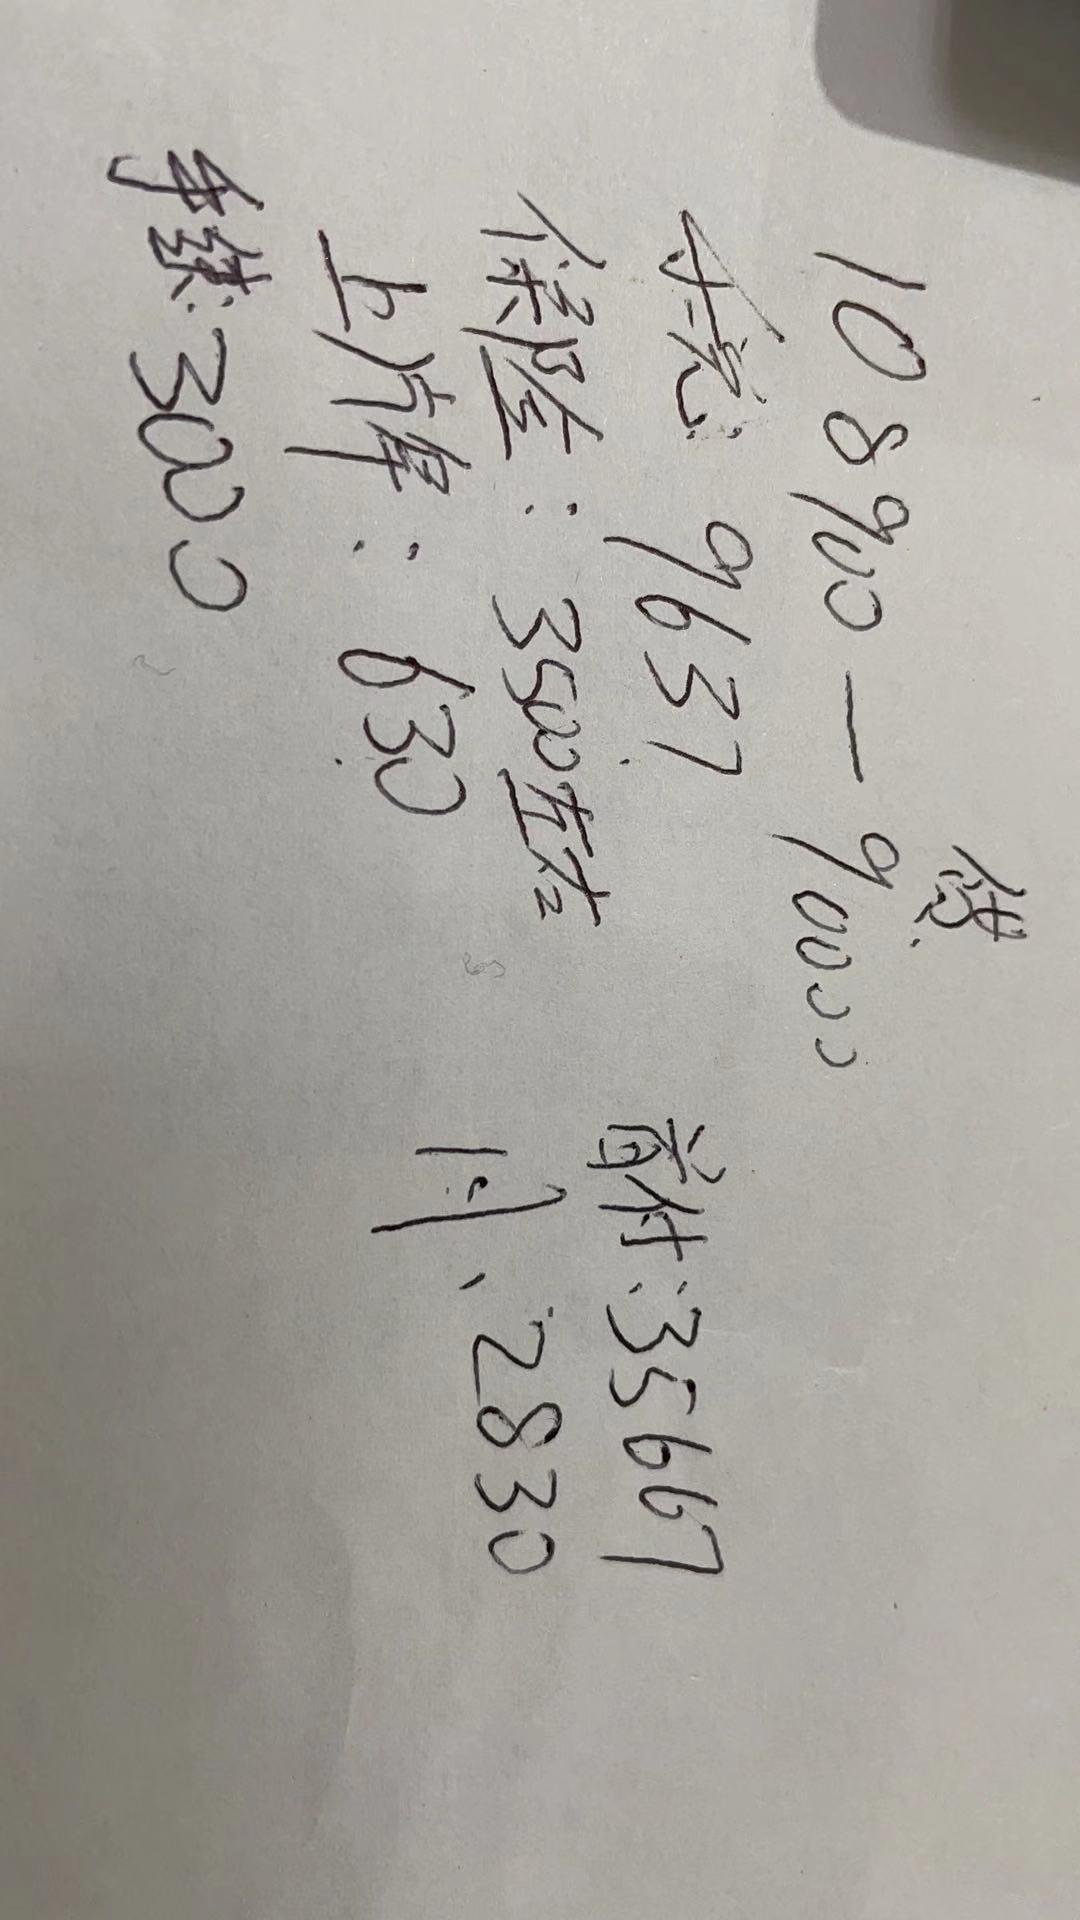 108900-90000
贷
税: 9637
保险: 3500左右
上牌: 630
手续: 3000
首付: 35667
月、2830